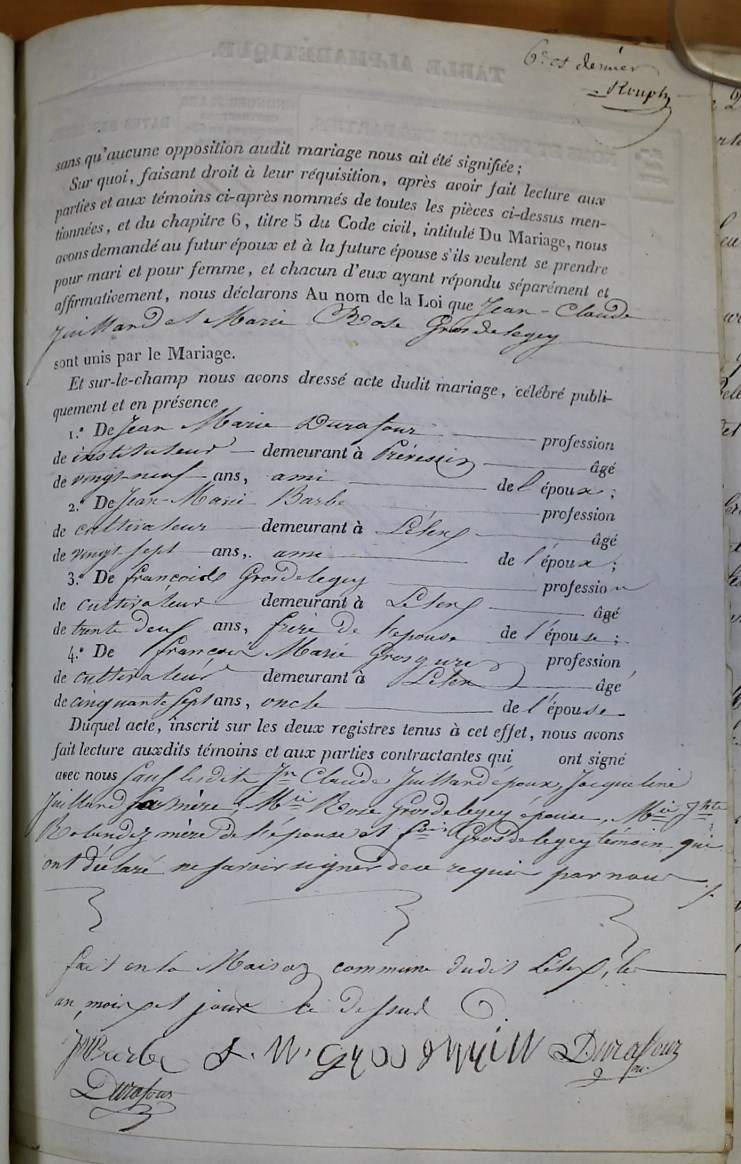 6.e et dernier
Rouph
sans qu'aucune opposition audit mariage nous ait été signifiée ;
Sur quoi, faisant droit à leur réquisition, après avoir fait lecture aux
parties et aux témoins ci-après nommés de toutes les pièces ci-dessus men-
tionnées, et du chapitre 6, titre 5 du Code civil, intitulé Du Mariage, nous
avons demandé au futur époux et à la future épouse s'ils veulent se prendre
pour mari et pour femme, et chacun d'eux ayant répondu séparément et
affirmativement, nous déclarons Au nom de la Loi que Jean-Claude
Juilland et Marie Rose Grosdelegey
sont unis par le Mariage.
Et sur-le-champ nous avons dressé acte dudit mariage, célébré publi-
quement et en présence
1.° De Jean Marie Durafour profession
de instituteur demeurant à Prévessin âgé
de vingt neuf ans, ami de l'époux ;
2.° De Jean-Marie Barbe profession
de cultivateur demeurant à Lélex âgé
de vingt sept ans, ami de l'époux ;
3.° De francois Grosdelegey profession
de cultivateur demeurant à Lélex âgé
de trente deux ans, frère de l'épouse de l'épouse ;
4.° De françois Marie Grosgurin profession
de cultivateur demeurant à Lélex âgé
de cinquante sept ans, oncle de l'épouse
Duquel acte, inscrit sur les deux registres tenus à cet effet, nous avons
fait lecture auxdits témoins et aux parties contractantes qui ont signé
avec nous sauf lesdits Jn Claude Juilland époux, Jacqueline
Juilland sa mère, Mie Rose Grosdelegey épouse, Mie Jhte
mère de l'épouse et fcois Grosdelegey témoin qui
ont déclaré ne savoir signer de ce requis par nous
fait en la Maison commune dudit Lélex, les
an, mois et jour ci dessus
Barbe f. m. grosgurin Durafour
Durafour